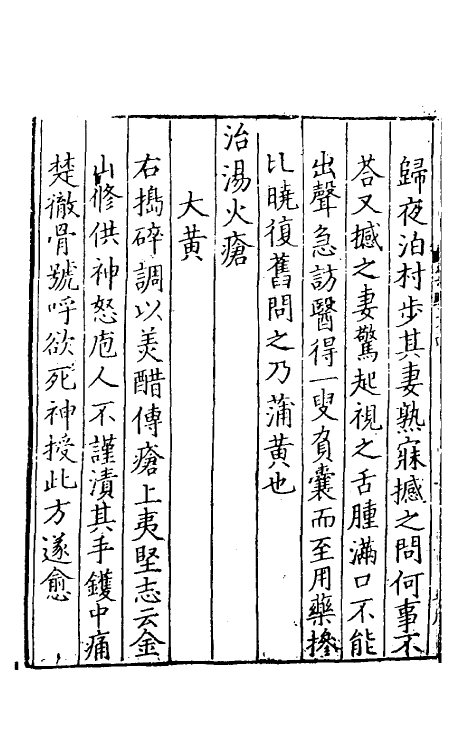 歸夜泊村步其妻熟寐撼之問何事不
荅又撼之妻驚起視之舌腫滿口不能
出聲急訪醫得一叟負囊而至用藥摻
比曉復舊問之乃蒲黄也
治湯火瘡
大黄
右搗碎調以美醋傅瘡上夷堅志云金
山修供神怒庖人不謹漬其手鑊中痛
楚徹骨號呼欲死神授此方遂愈